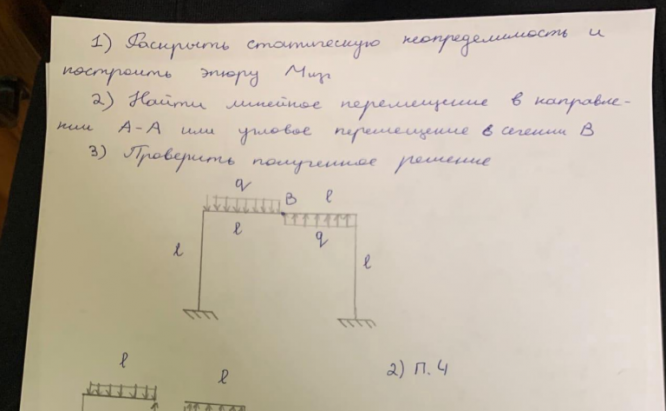 1) Раскрыть статическую неопределимость и
построить эпюру Mизг
2) Найти линейное перемещение в направле-
нии А-А или угловое перемещение в сечении В
3) Проверить полученное решение
q B l
l q
l l
l l
2) П. 4